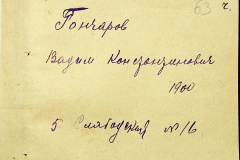 63 г.
Гончаров
Вадим Константинович
1900
5 Слободская № 16